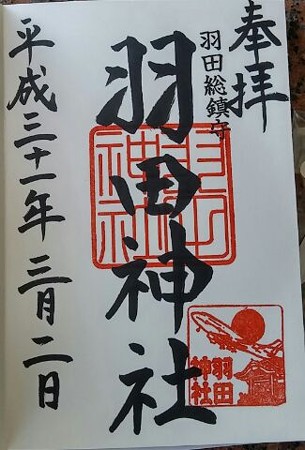 奉拝
羽田総鎮守
羽田神社
羽田神社
羽田
神社
平成三十一年三月二日